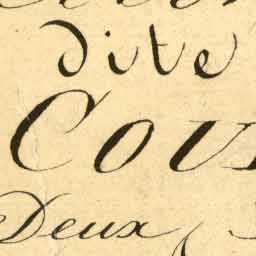 dite
Cou
Deux